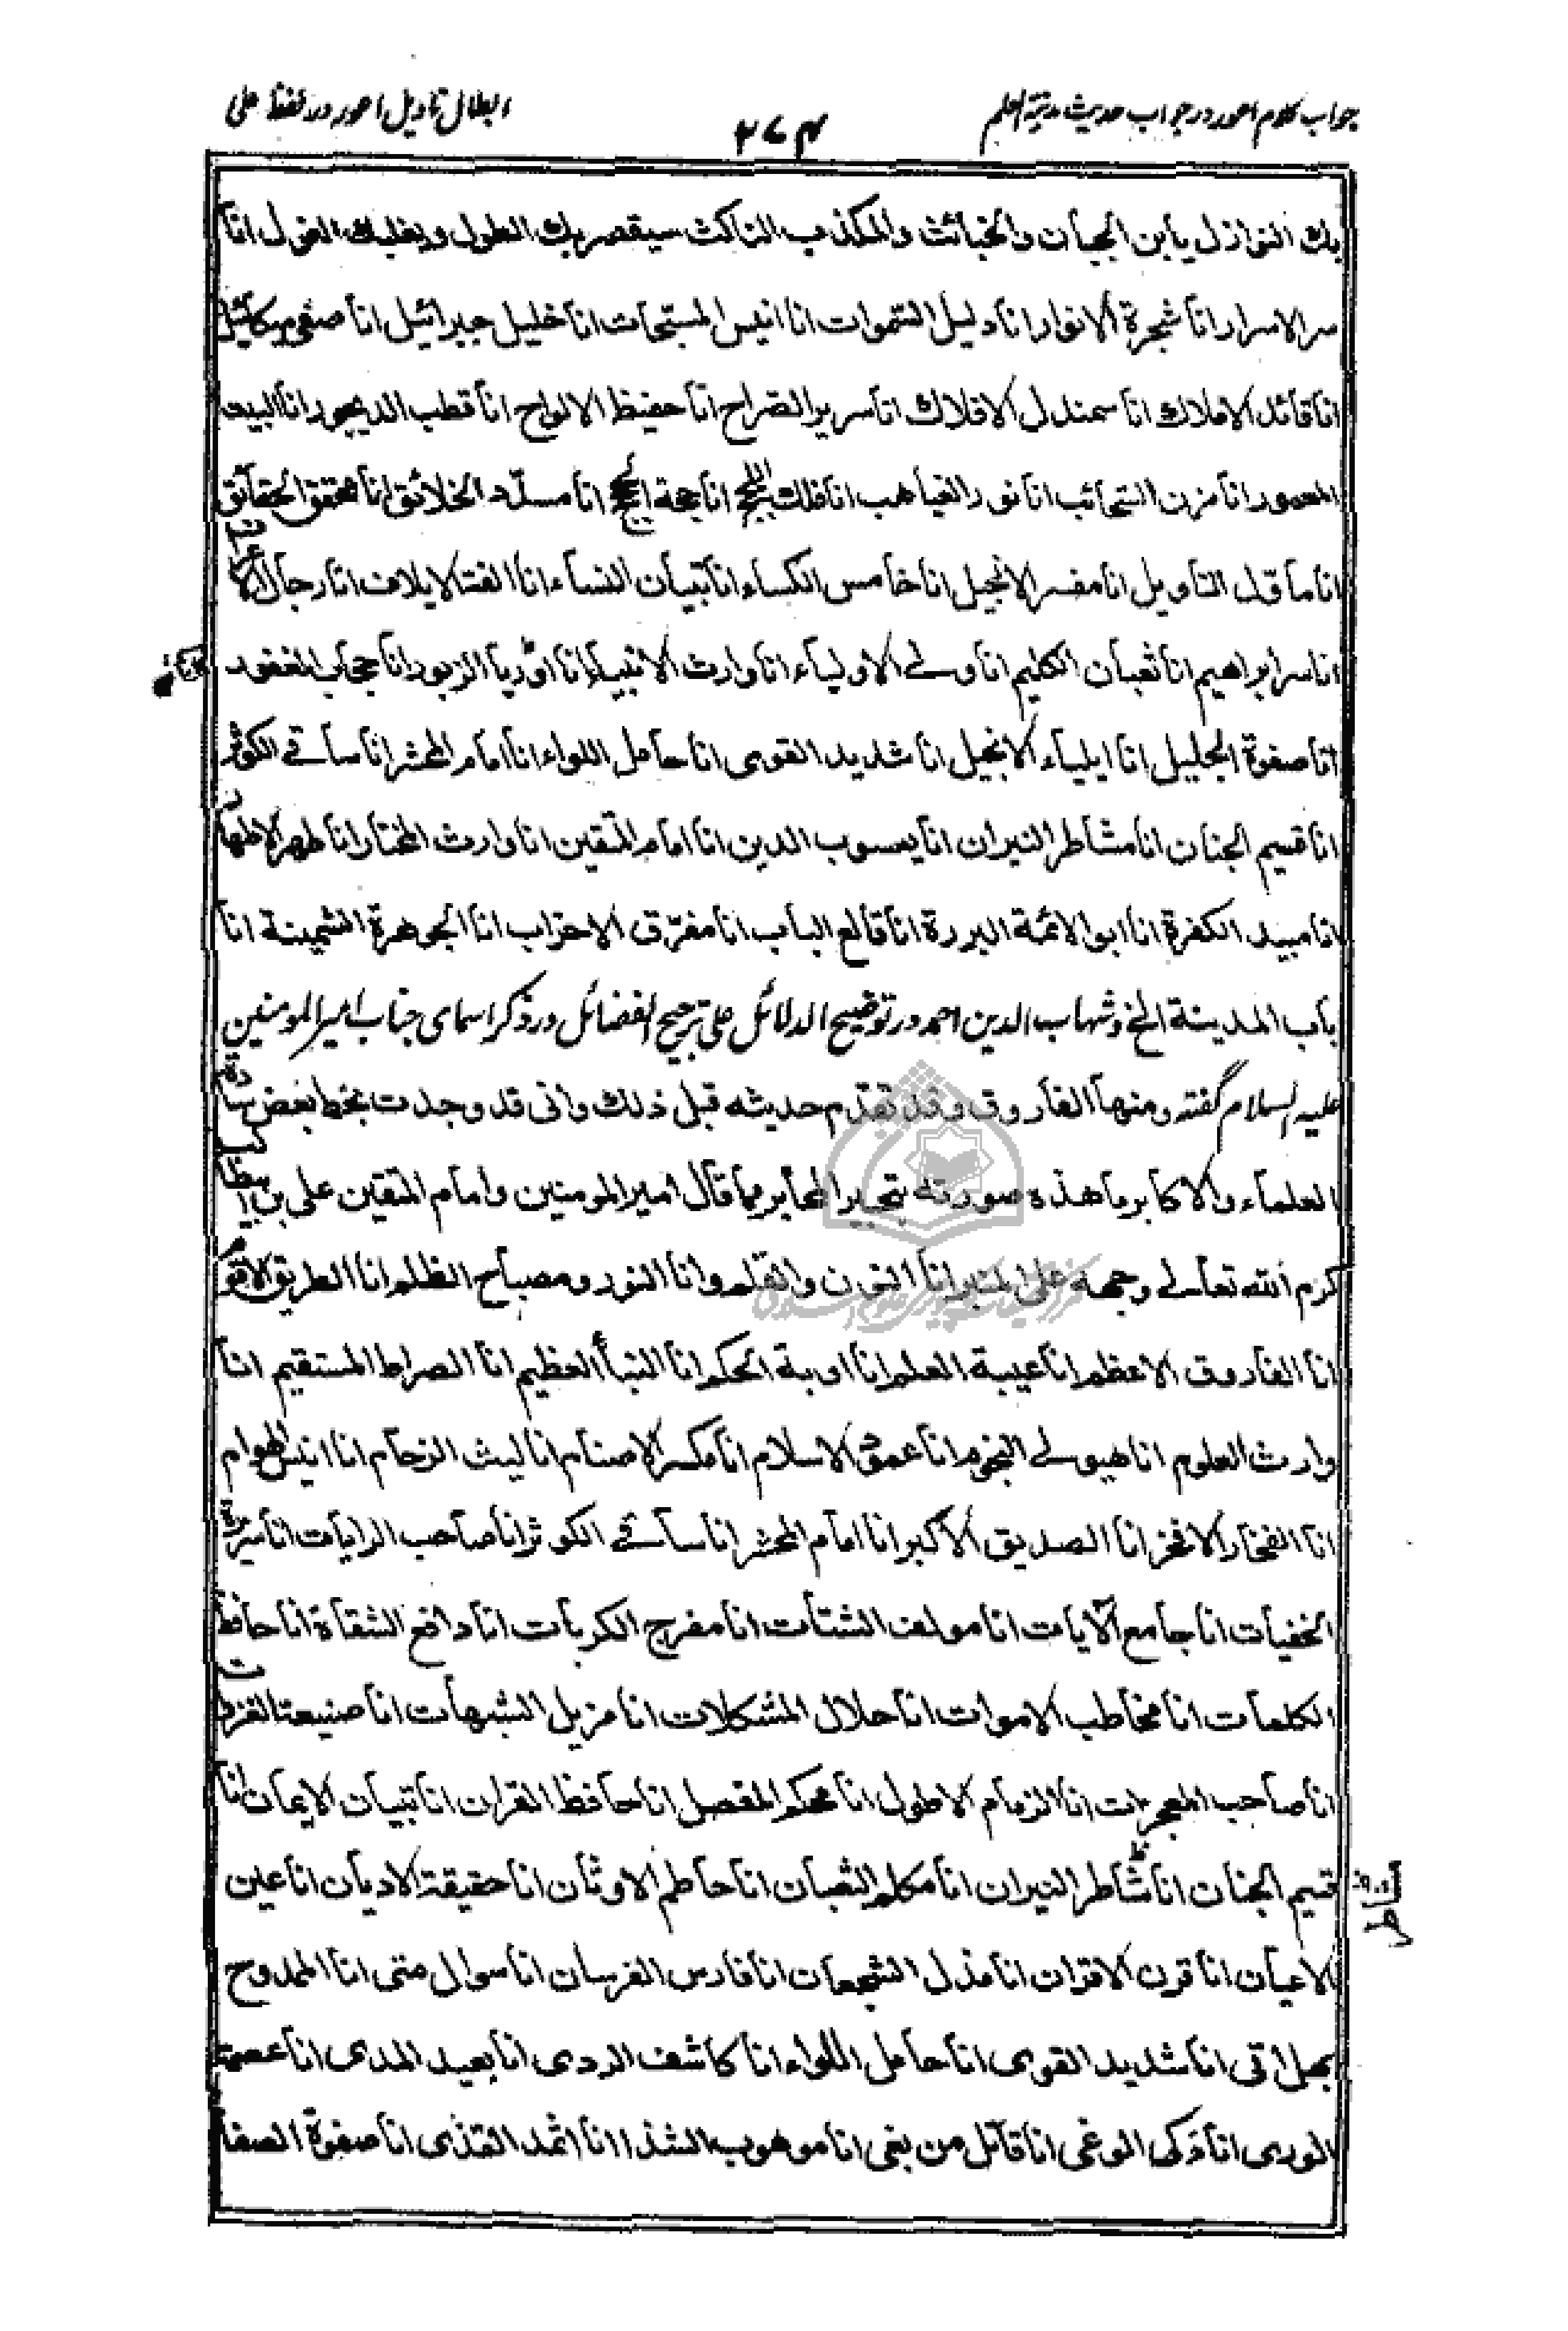 جواب کلام اعور در جواب حدیث مدینة العلم
۲۷۴
ابطال تاویل اعور در لفظ علی
بك النوازل يا بن الجبان والخبائث والمكذب الناكث سيقصر بك الطول ويغلبك الغول انا
سر الاسرار انا شجرة الانوار انا دليل السموات انا انيس المسبحات انا خليل جبرائيل انا صفي ميكائيل
انا قائد الاملاك انا سمندل الافلاك انا سرير الصراح انا حفيظ الالواح انا قطب الديجور انا البيت
المعمور انا مزن السحائب انا نور الغياهب انا فلك اللجج انا حجة الحجج انا مسدد الخلائق انا محقق الحقائق
انا ماول التاويل انا مفسر الانجيل انا خامس الكساء انا تبيان النساء انا الفة الايلاف انا رجال الاعراف
انا سر ابراهيم انا ثعبان الكليم انا ولي الاولياء انا وارث الانبياء انا اوريا الزبور انا حجاب الغفور
انا صفوة الجليل انا ايلياء الانجيل انا شديد القوى انا حامل اللواء انا امام المحشر انا ساقي الكوثر
انا قسيم الجنان انا مشاطر النيران انا يعسوب الدين انا امام المتقين انا وارث المختار انا طهر الاطهار
انا مبيد الكفرة انا ابو الائمة البررة انا قالع الباب انا مفرق الاحزاب انا الجوهرة الثمينة انا
باب المدينة الخ و شهاب الدين احمد در توضیح الدلائل علی ترجیح الفضائل در ذکر اسمای جناب امیر المومنین
علیه السلام گفته ومنها الفاروق وقد تقدم حديثه قبل ذلك واني قد وجدت بخط بعض سادة
العلماء والاكابر ما هذه صورته بتحبير المحابر مما قال امير المومنين وامام المتقين علي بن ابيطالب
كرم الله تعالى وجهه على المنبر انا النون والقلم وانا النور ومصباح الظلم انا الطريق الاقوم
انا الفاروق الاعظم انا عيبة العلم انا اوبة الحكم انا النبأ العظيم انا الصراط المستقيم انا
وارث العلوم انا هيولى النجوم انا عمود الاسلام انا مكسر الاصنام انا ليث الزحام انا انيس الهوام
انا الفخار الافخر انا الصديق الاكبر انا امام المحشر انا ساقي الكوثر انا صاحب الرايات انا سريرة
الخفيات انا جامع الآيات انا مولف الشتات انا مفرج الكربات انا دافع الشقاة انا حافظ
الكلمات انا مخاطب الاموات انا حلال المشكلات انا مزيل الشبهات انا صنيعة الغزوات
انا صاحب المعجزات انا الزمام الاطول انا محكم المفصل انا حافظ القران انا تبيان الايمان انا
قسيم الجنان انا شاطر النيران انا مكلم الثعبان انا حاطم الاوثان انا حقيقة الاديان انا عين
مشاطر
الاعيان انا قرن الاقران انا مذل الشجعان انا فارس الفرسان انا سوال متى انا الممدوح
بهل اتى انا شديد القوى انا حامل اللواء انا كاشف الردى انا بعيد المدى انا عصمة
الورى انا ذكي الوغى انا قاتل من بغى انا موهوب الشذا انا اثمد القذى انا صفوة الصفا